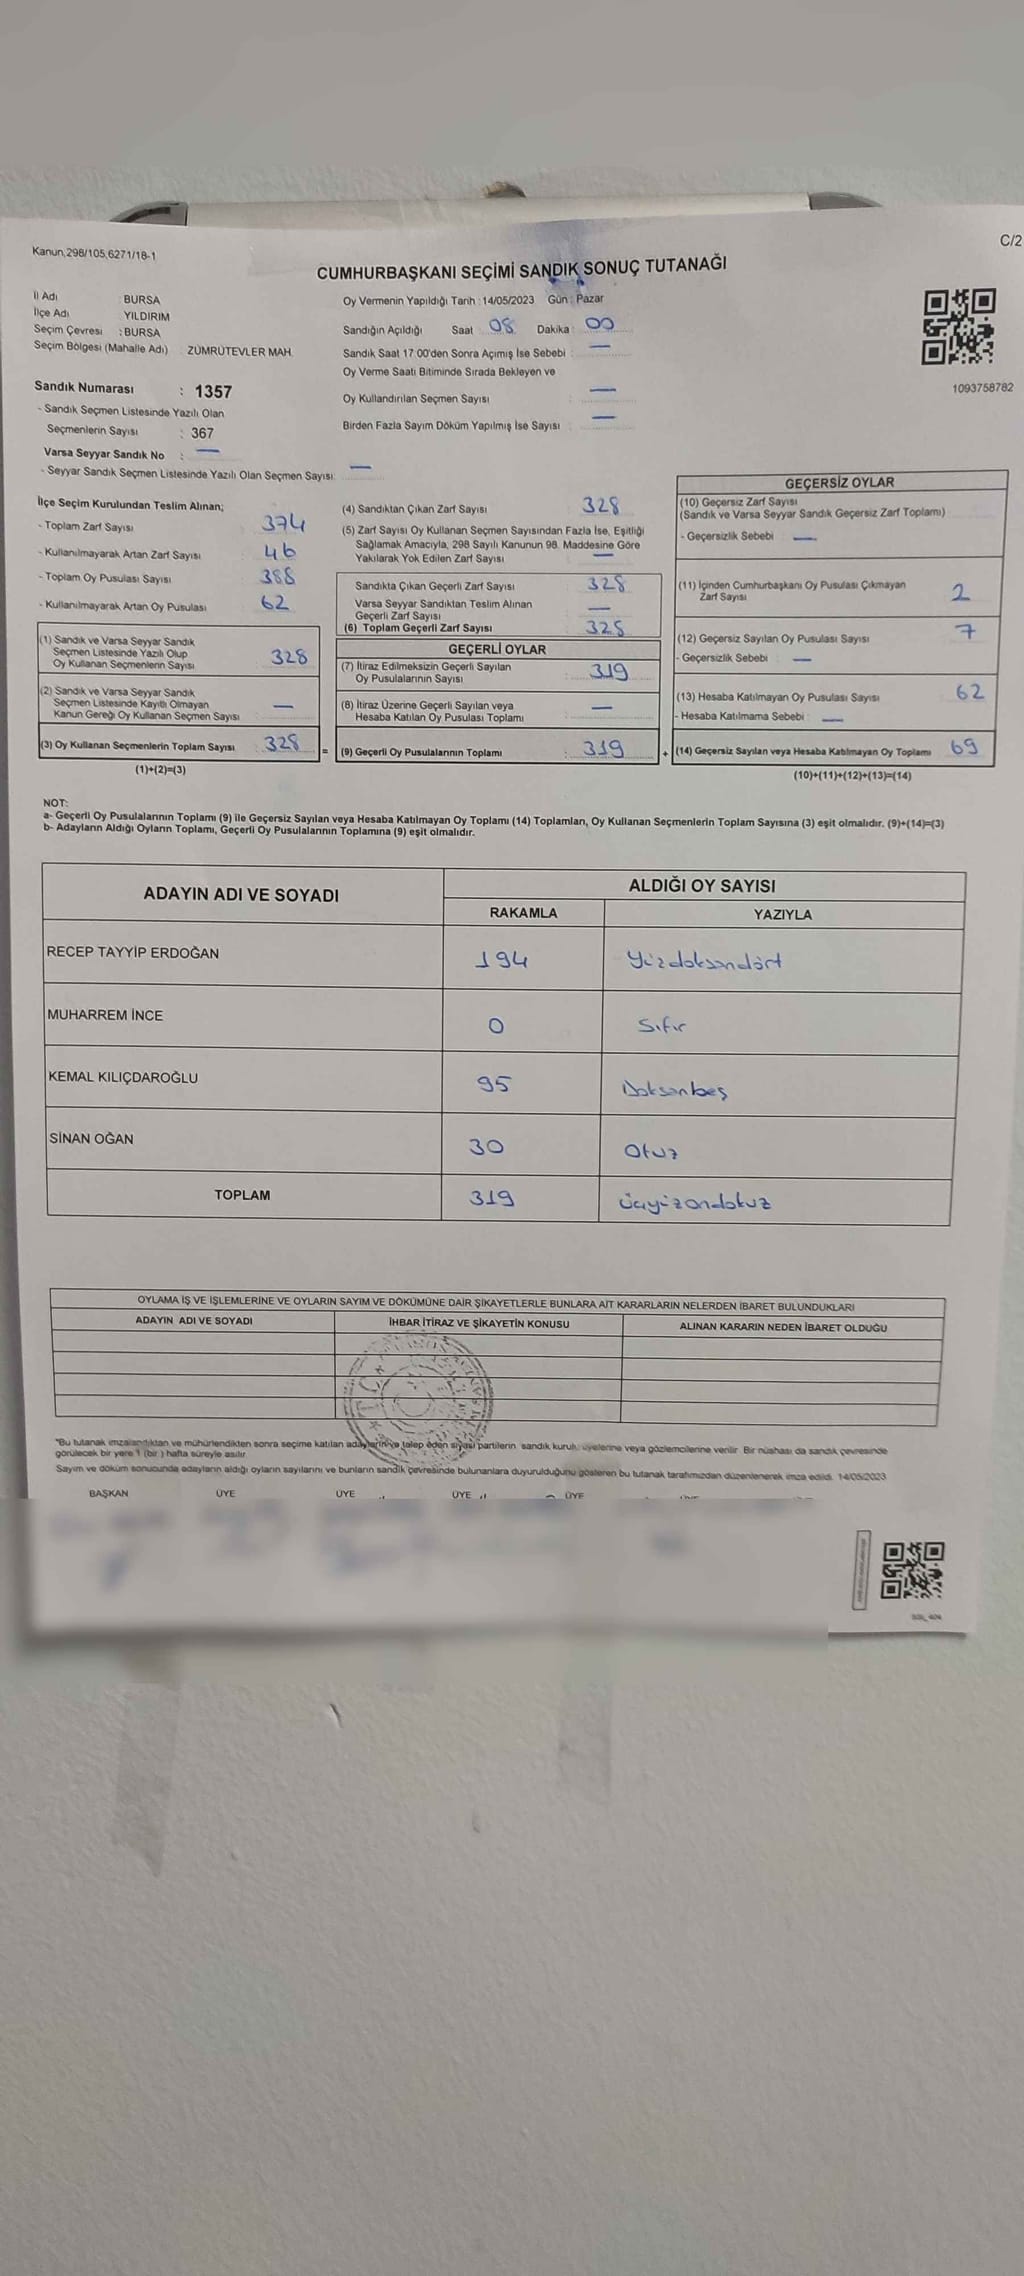 Kanun,298/105,6271/18-1
C/2
CUMHURBAŞKANI SEÇİMİ SANDIK SONUÇ TUTANAĞI
İl Adı : BURSA
İlçe Adı : YILDIRIM
Seçim Çevresi : BURSA
Seçim Bölgesi (Mahalle Adı) : ZÜMRÜTEVLER MAH.
Sandık Numarası : 1357
- Sandık Seçmen Listesinde Yazılı Olan
Seçmenlerin Sayısı : 367
Varsa Seyyar Sandık No : —
- Seyyar Sandık Seçmen Listesinde Yazılı Olan Seçmen Sayısı: —
Oy Vermenin Yapıldığı Tarih : 14/05/2023 Gün : Pazar
Sandığın Açıldığı Saat : 08 Dakika : 00
Sandık Saat 17:00'den Sonra Açımış İse Sebebi : —
Oy Verme Saati Bitiminde Sırada Bekleyen ve
Oy Kullandırılan Seçmen Sayısı : —
Birden Fazla Sayım Döküm Yapılmış İse Sayısı : —
1093758782
İlçe Seçim Kurulundan Teslim Alınan;
- Toplam Zarf Sayısı 374
- Kullanılmayarak Artan Zarf Sayısı 46
- Toplam Oy Pusulası Sayısı 388
- Kullanılmayarak Artan Oy Pusulası 62
(1) Sandık ve Varsa Seyyar Sandık
Seçmen Listesinde Yazılı Olup
Oy Kullanan Seçmenlerin Sayısı 328
(2) Sandık ve Varsa Seyyar Sandık
Seçmen Listesinde Kayıtlı Olmayan
Kanun Gereği Oy Kullanan Seçmen Sayısı —
(3) Oy Kullanan Seçmenlerin Toplam Sayısı 328
(1)+(2)=(3)
(4) Sandıktan Çıkan Zarf Sayısı 328
(5) Zarf Sayısı Oy Kullanan Seçmen Sayısından Fazla İse, Eşitliği
Sağlamak Amacıyla, 298 Sayılı Kanunun 98. Maddesine Göre
Yakılarak Yok Edilen Zarf Sayısı —
Sandıkta Çıkan Geçerli Zarf Sayısı 328
Varsa Seyyar Sandıktan Teslim Alınan
Geçerli Zarf Sayısı —
(6) Toplam Geçerli Zarf Sayısı 328
GEÇERLİ OYLAR
(7) İtiraz Edilmeksizin Geçerli Sayılan
Oy Pusulalarının Sayısı : 319
(8) İtiraz Üzerine Geçerli Sayılan veya
Hesaba Katılan Oy Pusulası Toplamı : —
= (9) Geçerli Oy Pusulalarının Toplamı : 319
GEÇERSİZ OYLAR
(10) Geçersiz Zarf Sayısı
(Sandık ve Varsa Seyyar Sandık Geçersiz Zarf Toplamı)
- Geçersizlik Sebebi : —
(11) İçinden Cumhurbaşkanı Oy Pusulası Çıkmayan
Zarf Sayısı 2
(12) Geçersiz Sayılan Oy Pusulası Sayısı 7
- Geçersizlik Sebebi : —
(13) Hesaba Katılmayan Oy Pusulası Sayısı 62
- Hesaba Katılmama Sebebi : —
+ (14) Geçersiz Sayılan veya Hesaba Katılmayan Oy Toplamı 69
(10)+(11)+(12)+(13)=(14)
NOT:
a- Geçerli Oy Pusulalarının Toplamı (9) ile Geçersiz Sayılan veya Hesaba Katılmayan Oy Toplamı (14) Toplamları, Oy Kullanan Seçmenlerin Toplam Sayısına (3) eşit olmalıdır. (9)+(14)=(3)
b- Adayların Aldığı Oyların Toplamı, Geçerli Oy Pusulalarının Toplamına (9) eşit olmalıdır.
ADAYIN ADI VE SOYADI ALDIĞI OY SAYISI
RAKAMLA YAZIYLA
RECEP TAYYİP ERDOĞAN 194 Yüzdoksandört
MUHARREM İNCE 0 Sıfır
KEMAL KILIÇDAROĞLU 95 Doksanbeş
SİNAN OĞAN 30 Otuz
TOPLAM 319 üçyüzondokuz
OYLAMA İŞ VE İŞLEMLERİNE VE OYLARIN SAYIM VE DÖKÜMÜNE DAİR ŞİKAYETLERLE BUNLARA AİT KARARLARIN NELERDEN İBARET BULUNDUKLARI
ADAYIN ADI VE SOYADI İHBAR İTİRAZ VE ŞİKAYETİN KONUSU ALINAN KARARIN NEDEN İBARET OLDUĞU
*Bu tutanak imzalandıktan ve mühürlendikten sonra seçime katılan adayların ve talep eden siyasi partilerin sandık kurulu üyelerine veya gözlemcilerine verilir. Bir nüshası da sandık çevresinde
görülecek bir yere 1 (bir ) hafta süreyle asılır.
Sayım ve döküm sonucunda adayların aldığı oyların sayılarını ve bunların sandık çevresinde bulunanlara duyurulduğunu gösteren bu tutanak tarafımızdan düzenlenerek imza edildi. 14/05/2023
BAŞKAN ÜYE ÜYE ÜYE ÜYE